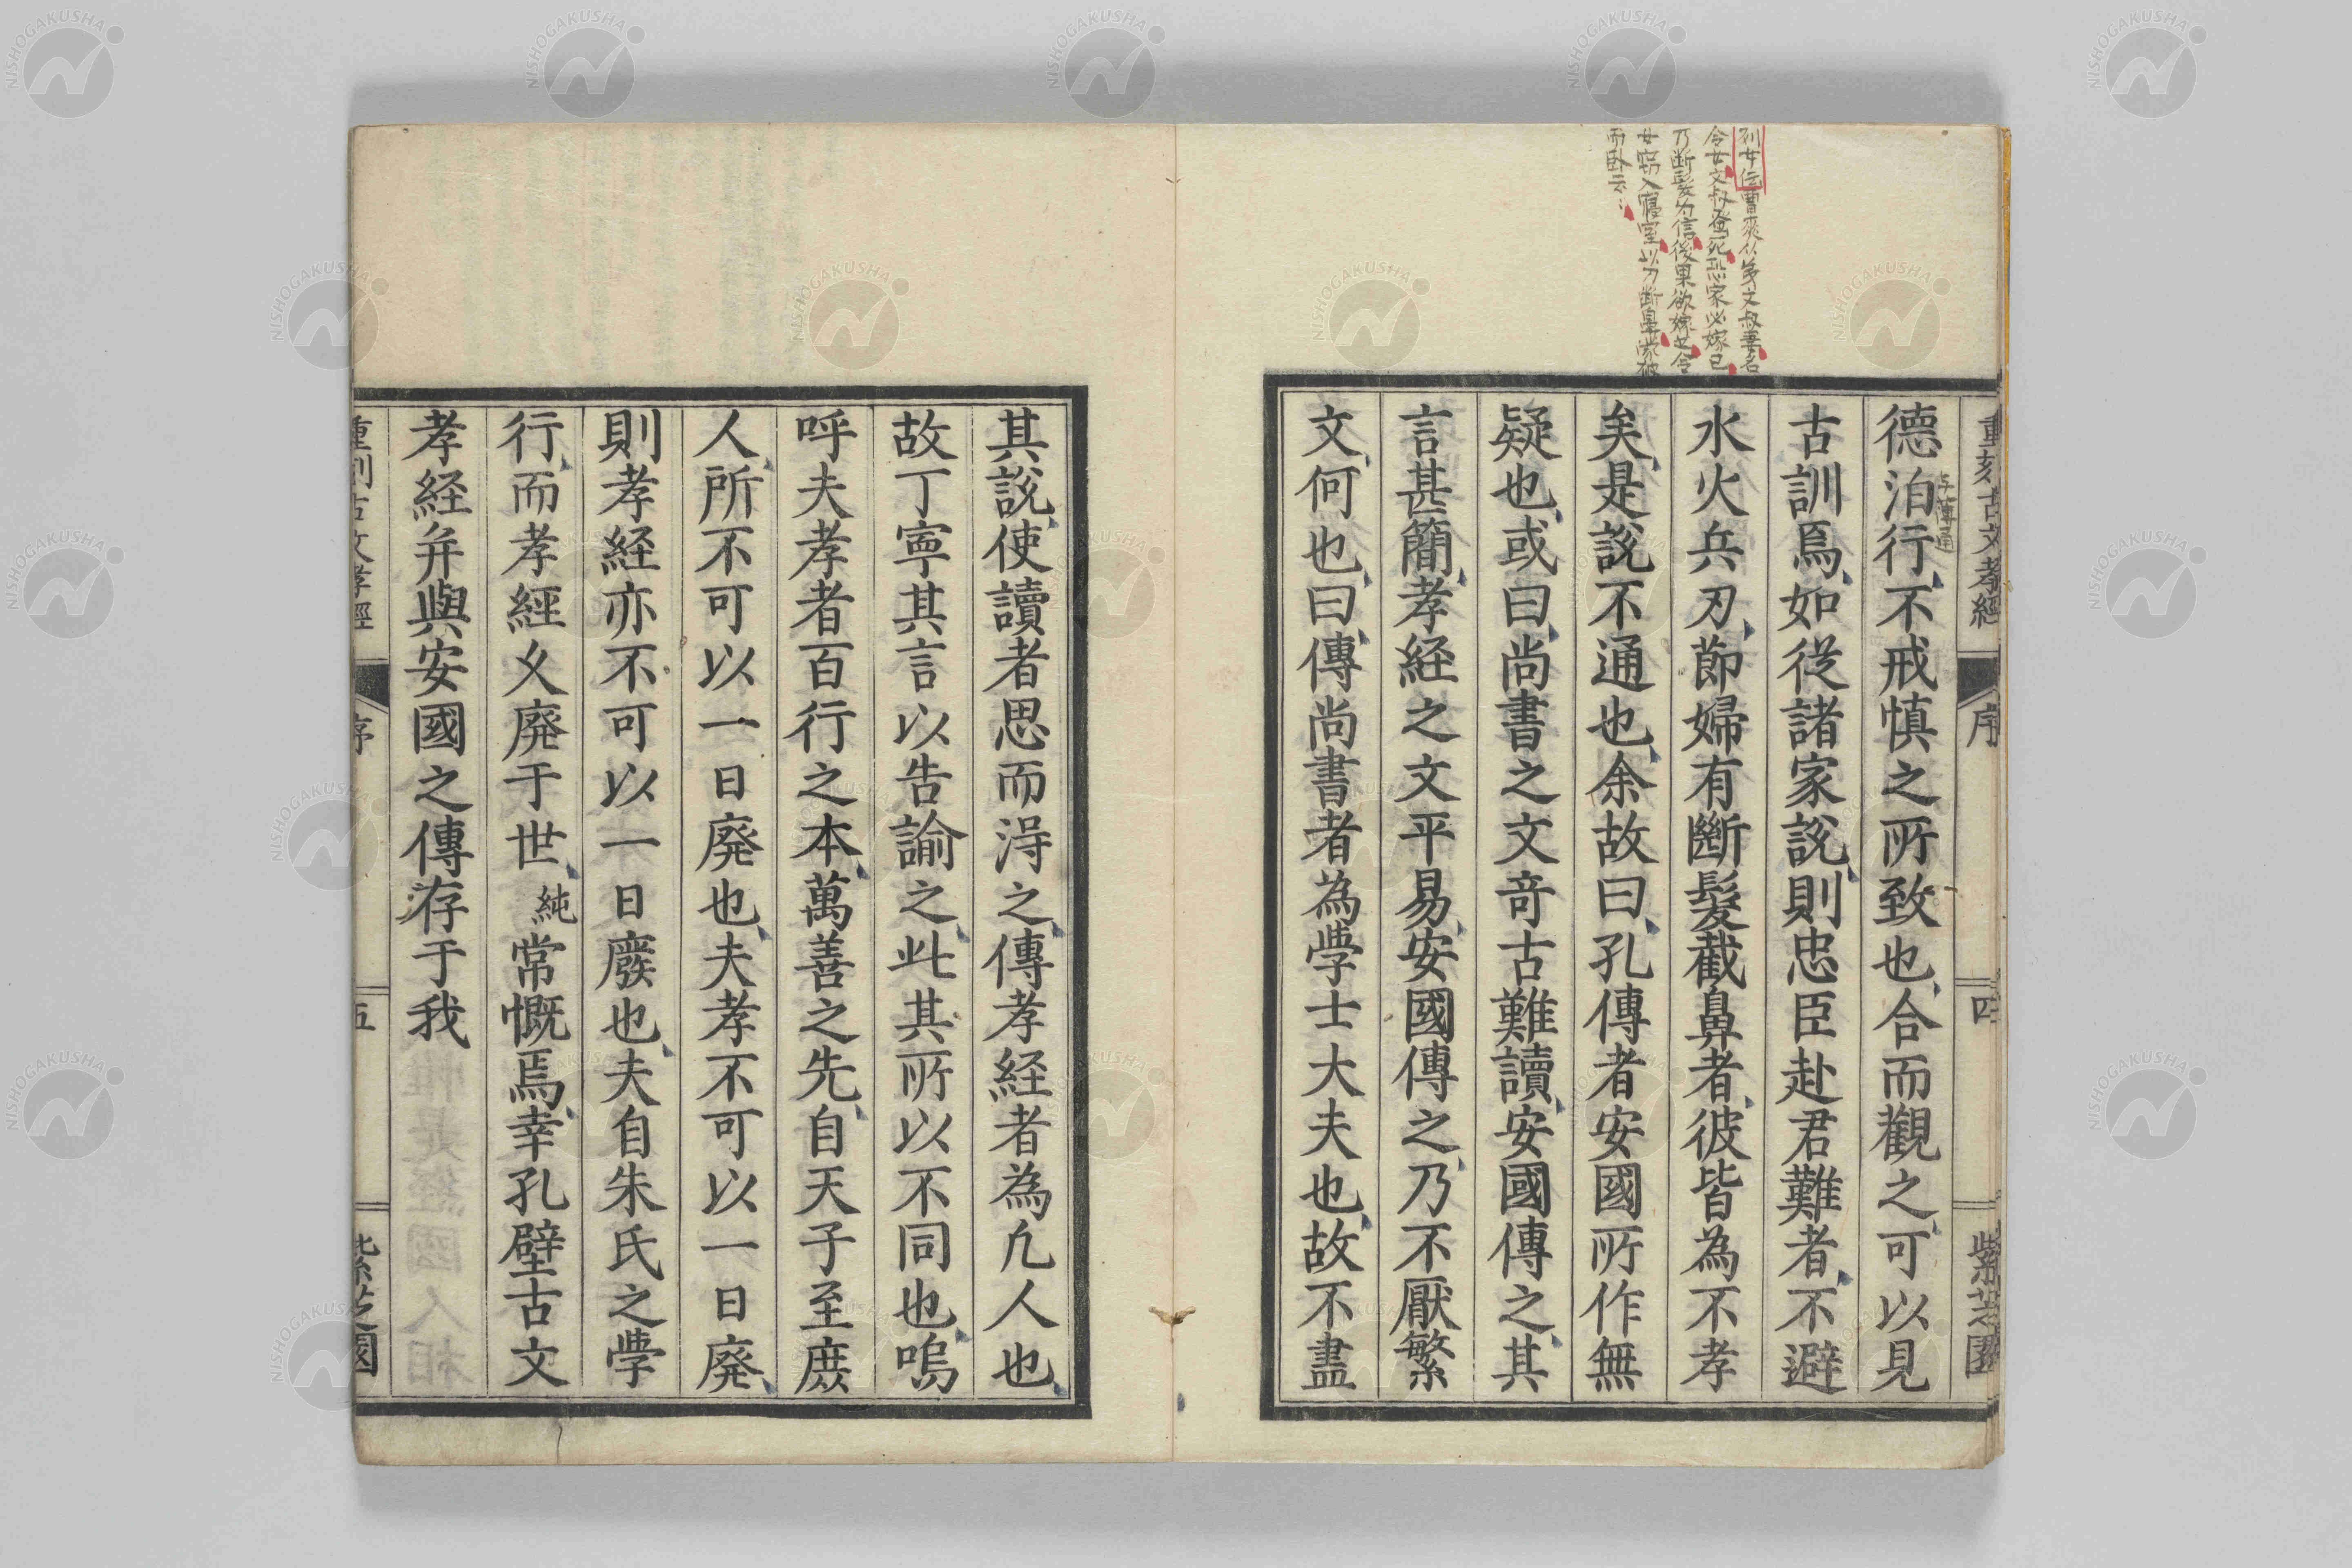 列女伝曹爽从弟文叔妻名
令女文叔蚤死恐家必嫁己
乃断髪为信後果欲嫁之令
女窃入寝室以刀断鼻蒙被
而卧云〻
重刻古文孝經
序
四
紫芝園
德泊行不戒慎之所致也合而觀之可以見
与薄通
古訓焉如從諸家説則忠臣赴君難者不避
水火兵刃節婦有斷髮截鼻者彼皆為不孝
矣是説不通也余故曰孔傳者安國所作無
疑也或曰尚書之文奇古難讀安國傳之其
言甚簡孝経之文平易安國傳之乃不厭繁
文何也曰傳尚書者為學士大夫也故不盡
其説使讀者思而得之傳孝経者為凢人也
故丁寧其言以告諭之此其所以不同也嗚
呼夫孝者百行之本萬善之先自天子至庶
人所不可以一日廢也夫孝不可以一日廢
則孝経亦不可以一日廢也夫自朱氏之學
行而孝經久廃于世純常慨焉幸孔壁古文
孝経并與安國之傳存于我
重刻古文孝經
序
五
紫芝園
NISHOGAKUSHA